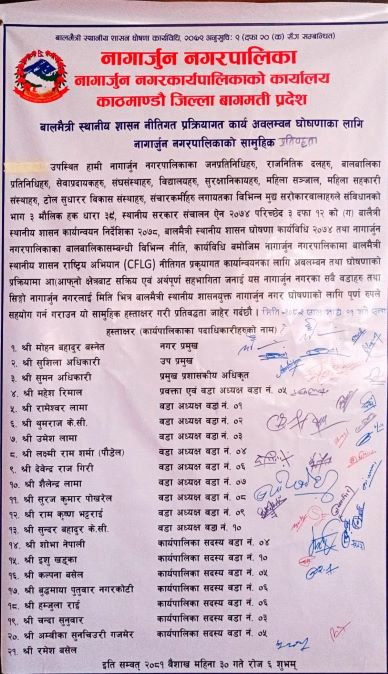 बालमैत्री स्थानीय शासन घोषणा कार्यविधि, २०७८ अनुसूचि: ९ (दफा २० (क) सँग सम्बन्धित)
नागार्जुन नगरपालिका
नागार्जुन नगरकार्यपालिकाको कार्यालय
काठमाण्डौ जिल्ला बागमती प्रदेश
बालमैत्री स्थानीय शासन नीतिगत प्रक्रियागत कार्य अवलम्बन घोषणाका लागि
नागार्जुन नगरपालिकाको सामुहिक प्रतिवद्धता
उपस्थित हामी नागार्जुन नगरपालिकाका जनप्रतिनिधिहरु, राजनितिक दलहरु, बालबालिका
प्रतिनिधिहरु, सेवाप्रदायकहरु, संघसंस्थाहरु, विद्यालयहरु, सुरक्षानिकायहरु, महिला सञ्जाल, महिला सहकारी
संस्थाहरु, टोल सुधारर विकास संस्थाहरु, संचारकर्मीहरु लगायतका विभिन्न मुख्य सरोकारवालाहरुले संविधानको
भाग ३ मौलिक हक धारा ३९, स्थानीय सरकार संचालन ऐन २०७४ परिच्छेद ३ दफा १२ को (ग) बालमैत्री
स्थानीय शासन कार्यान्वयन निर्देशिका २०७८, बालमैत्री स्थानीय शासन घोषणा कार्यविधि २०७४ तथा नागार्जुन
नगरपालिकाका बालबालिकासम्बन्धी विभिन्न नीति, कार्यविधि बमोजिम नागार्जुन नगरपालिकामा बालमैत्री
स्थानीय शासन राष्ट्रिय अभियान (CFLG) नीतिगत प्रकृयागत कार्यान्वयनका लागि अवलम्बन तथा घोषणाको
प्रक्रियामा आ-आफ्नो क्षेत्रबाट सक्रिय एवं अर्थपूर्ण सहभागिता जनाई यस नागार्जुन नगरका सबै वडाहरु तथा
सिङ्गो नागार्जुन नगरलाई मिति भित्र बालमैत्री स्थानीय शासनयुक्त नागार्जुन नगर घोषणाको लागि पूर्ण रुपले
सहयोग गर्न गराउन यो सामुहिक हस्ताक्षर गरी प्रतिवद्धता जाहेर गर्दछौं ।
हस्ताक्षर (कार्यपालिकाका पदाधिकारीहरुको नाम)
१. श्री मोहन बहादुर बस्नेत नगर प्रमुख
२. श्री सुशिला अधिकारी उप प्रमुख
३. श्री सुमन अधिकारी प्रमुख प्रशासकीय अधिकृत
४. श्री महेश रिमाल प्रवक्ता एवं वडा अध्यक्ष वडा नं. ०५
५. श्री रामेश्वर लामा वडा अध्यक्ष वडा नं. ०१
६. श्री थुमराज के.सी. वडा अध्यक्ष वडा नं. ०२
७. श्री उमेश लामा वडा अध्यक्ष वडा नं. ०३
८. श्री लक्ष्मी राम शर्मा (पौडेल) वडा अध्यक्ष वडा नं. ०४
९. श्री देवेन्द्र राज गिरी वडा अध्यक्ष वडा नं. ०६
१०. श्री शैलेन्द्र लामा वडा अध्यक्ष वडा नं. ०७
११. श्री सुरज कुमार पोखरेल वडा अध्यक्ष वडा नं. ०८
१२. श्री राम कृष्ण भट्टराई वडा अध्यक्ष वडा नं. ०९
१३. श्री सुन्दर बहादुर के.सी. वडा अध्यक्ष वडा नं. १०
१४. श्री शोभा नेपाली कार्यपालिका सदस्य वडा नं. ०४
१५. श्री इशु खड्का कार्यपालिका सदस्य वडा नं. १०
१६. श्री कल्पना बसेल कार्यपालिका सदस्य वडा नं. ०५
१७. श्री बुद्धमाया पुतुवार नगरकोटी कार्यपालिका सदस्य वडा नं. ०६
१८. श्री हम्जुला राई कार्यपालिका सदस्य वडा नं. ०६
१९. श्री चन्दा सुनुवार कार्यपालिका सदस्य वडा नं. ०४
२०. श्री अम्वीका सुनचिउरी गजमेर कार्यपालिका सदस्य वडा नं. ०५
२१. श्री रमेश बसेल
इति सम्वत् २०८१ बैशाख महिना ३० गते रोज १ शुभम्